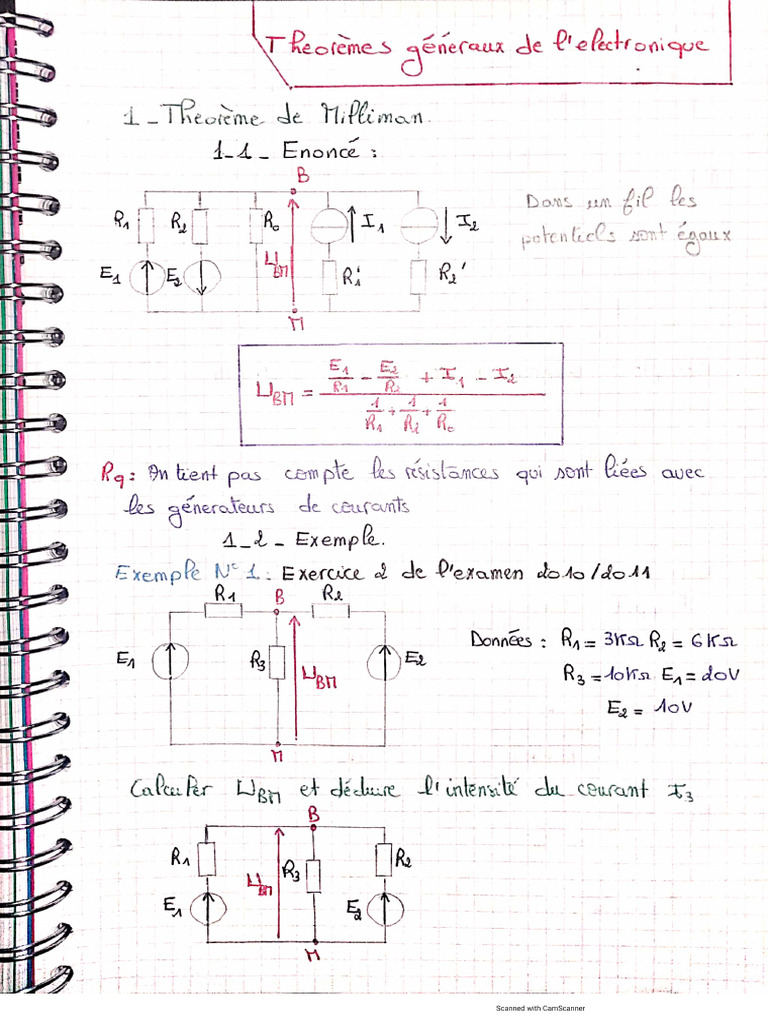 Théorèmes généraux de l'electronique
1_Théorème de Milliman.
1_1_ Enoncé :
B
R1 R2 R0 I1 I2
Dans un fil les
potentiels sont égaux
E1 E2 UBM R1' R2'
M
UBM = (E1/R1 - E2/R2 + I1 - I2) / (1/R1 + 1/R2 + 1/R0)
Rq: On tient pas compte les résistances qui sont liées avec
les génerateurs de courants
1_2_ Exemple.
Exemple N°1: Exercice 2 de l'examen 2010/2011
R1 B R2
E1 R3 UBM E2
Données : R1 = 3KΩ R2 = 6KΩ
R3 = 10KΩ E1 = 20V
E2 = 10V
M
Calculer UBM et déduire l'intensité du courant I3
B
R1 R3 R2
E1 UBM E2
M
Scanned with CamScanner